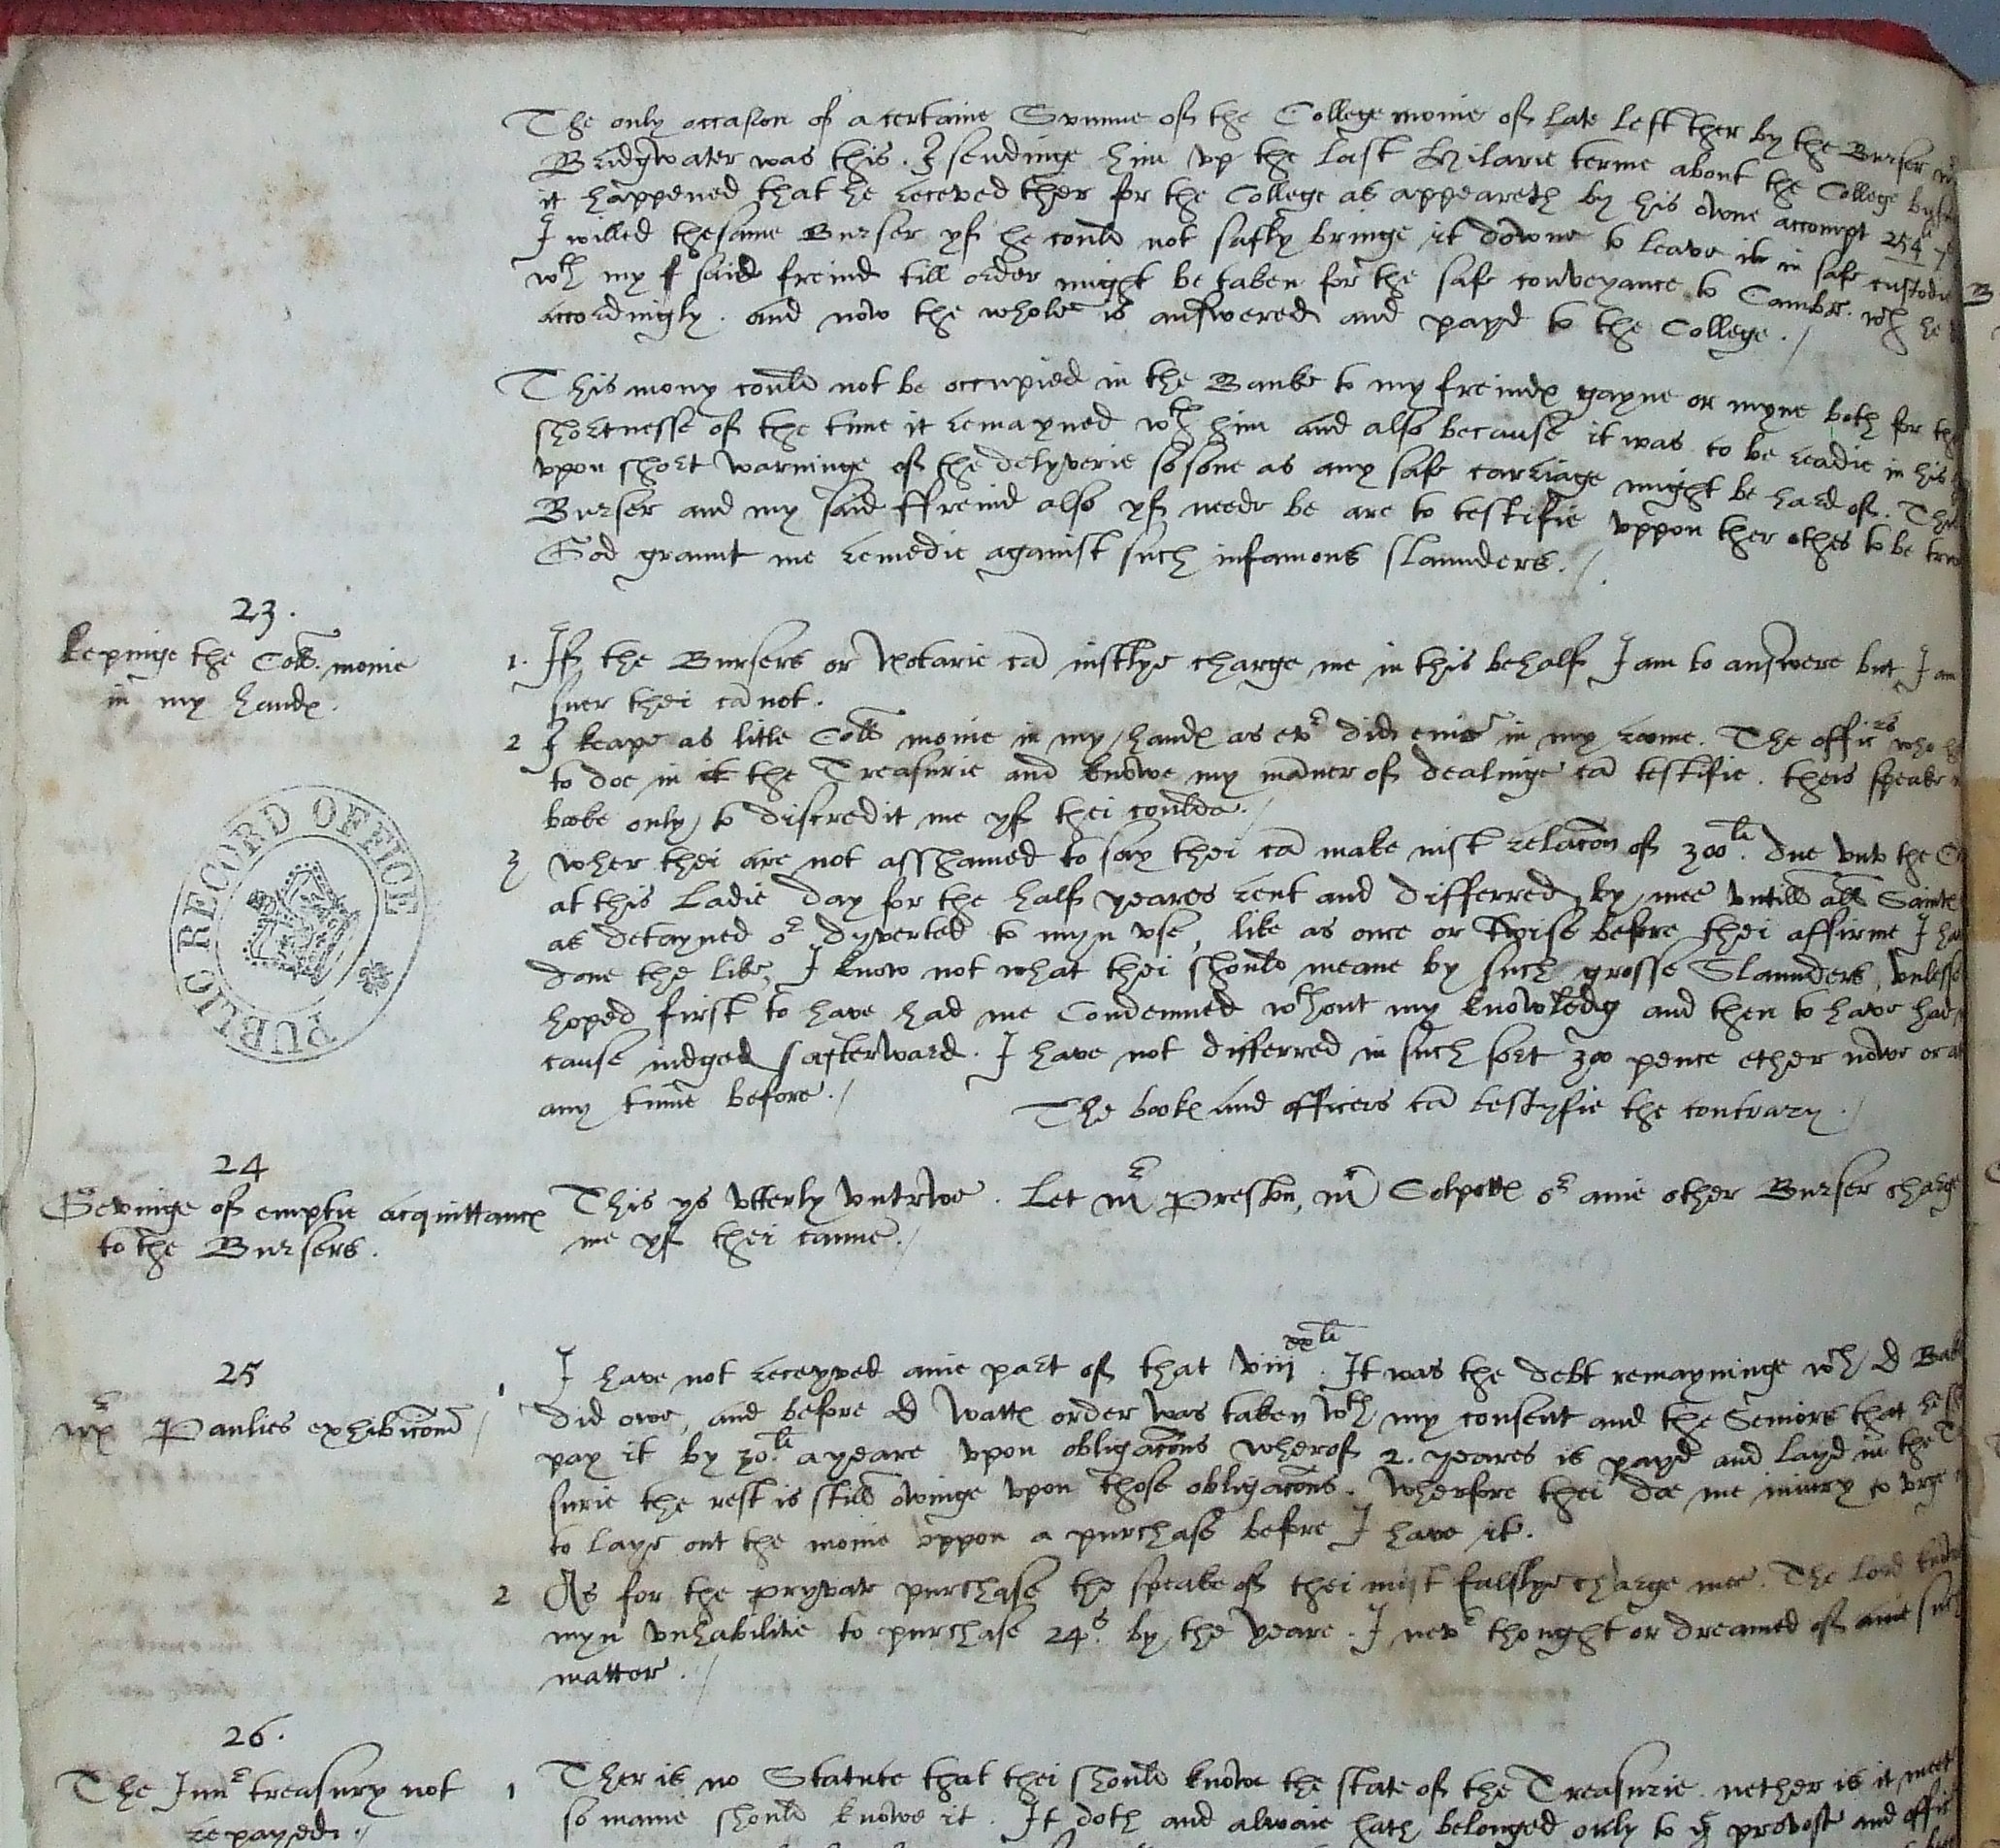 The only occasion of a certaine Summe of the College monie of late left ther by the Burser
Bridgwater was this. I sendinge him vp the last Hilarie terme about the College
it happened that he receved ther for the College as appeareth by his owne accompt 254li
I willed thesame Burser yf he could not safly bringe it downe to leave it in safe custodie
wth my said freind till order might be taken for the safe conveyance to Cambr. wch he
accordingly. and now the whole is answered and payd to the College.
This mony could not be occupied in the Banke to my freindes gayne or myne both for the
shortnesse of the time it remayned wth him and also because it was to be readie in his
vpon short warninge of the delyverie so sone as any safe carriage might be hard of.
Burser and my said ffreind also yf nede be are to testifie vppon ther othes to be true
God graunt me remedie against such infamous slaunders.
23.
Kepinge the Coll. monie
in my handes.
1. If the Bursers or Notarie cā iustlye charge me in this behalf I am to answere but I am
suer thei cānot.
2 I keape as litle Coll monie in my handes as evr did enie in my roome. The officers who
to doe in the Treasurie and knowe my māner of dealinge cā testifie. theis speake
boke only to discredit me yf thei coulde.
3 wher thei are not asshamed to say thei cā make iust relacōn of 300li. due vnto the
at this Ladie day for the half yeares rent and differred by mee vntill all Saintes
as detayned or dyverted to myn vse, like as once or twise before thei affirme I have
done the like, I know not what thei should meane by such grosse Slaunders, vnlesse
hoped first to have had me Condemned wthout my knowledg and then to have had
cause iudged afterward. I have not differred in such sort 300 pence ether nowe or at
any time before. The bookes and officers cā testyfie the contrary.
PUBLIC RECORD OFFICE
24
Gevinge of emptie acquittances
to the Bursers.
This ys vtterly vntrwe. Let mr Presbu, mr Colpottes or anie other Burser charge
me yf thei canne.
25
mres Paulies exhibicōn
1 I have not receyved anie part of that viiixxli. It was the debt remayninge wch D
did owe, and before D Wattes order was taken wth my consent and the Seniors that
pay it by 30li. a yeare vpon obligacōns wherof 2. yeares is payd and layd in the
surie the rest is still owinge vpon those obligacōns. Wherfore thei doe me iniury to vrge
to laye out the monie vppon a purchase before I have it.
2 As for the pryvate purchase the speake of thei most falslye charge mee. The Lord
myn vnhabilitie to purchase 24s. by the yeare. I nevr thought or dreamed of anie such
matter.
26.
The Innr treasury not
repayed.
1 Ther is no Statute that thei should knowe the state of the Treasurie. nether is it meet
so manie should knowe it. It doth and alwaie hath belonged only to ye provost and